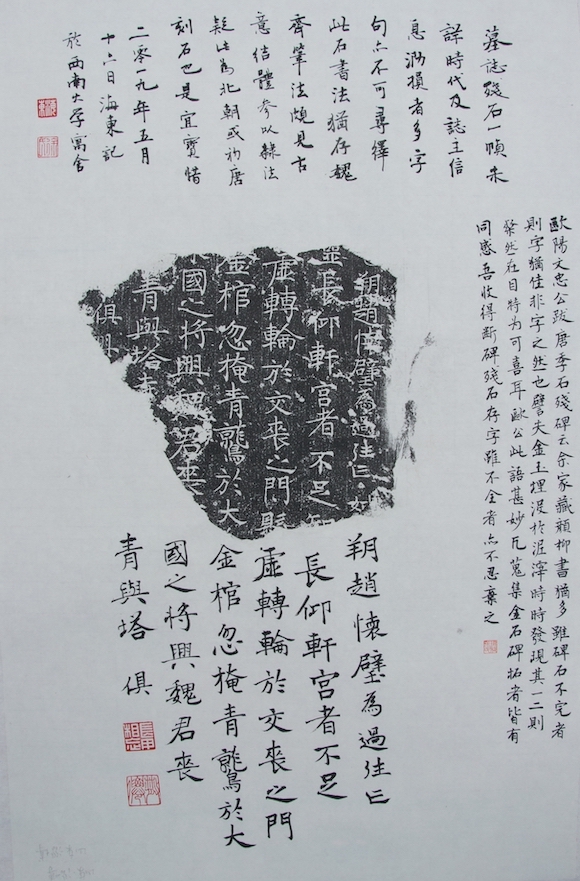 墓誌殘石一幀未
詳時代及誌主信
息泐損者多字
句亦不可尋繹
此石書法猶存魏
齊筆法頗見古
意結體參以隸法
疑此為北朝或初唐
刻石也是宜寶惜
二零一九年五月
十六日海東記
於西南大學寓舍
歐陽文忠公跋唐李石殘碑云余家藏顏柳書猶多雖碑石不完者
則字猶佳非字之然也譬夫金玉埋沒於泥滓時時發現其一二則
粲然在目特為可喜耳歐公此語甚妙凡蒐集金石碑拓者皆有
同感吾收得斷碑殘石存字雖不全者亦不忍棄之
朔趙懷璧為過往
長仰軒宮者不足
虛轉輪於交喪之門
金棺忽掩青於大
國之将興魏君喪
青與塔
俱
朔趙懷璧為過往
長仰軒宮者不足
虛轉輪於交喪之門
金棺忽掩青於大
國之将興魏君喪
青與塔俱